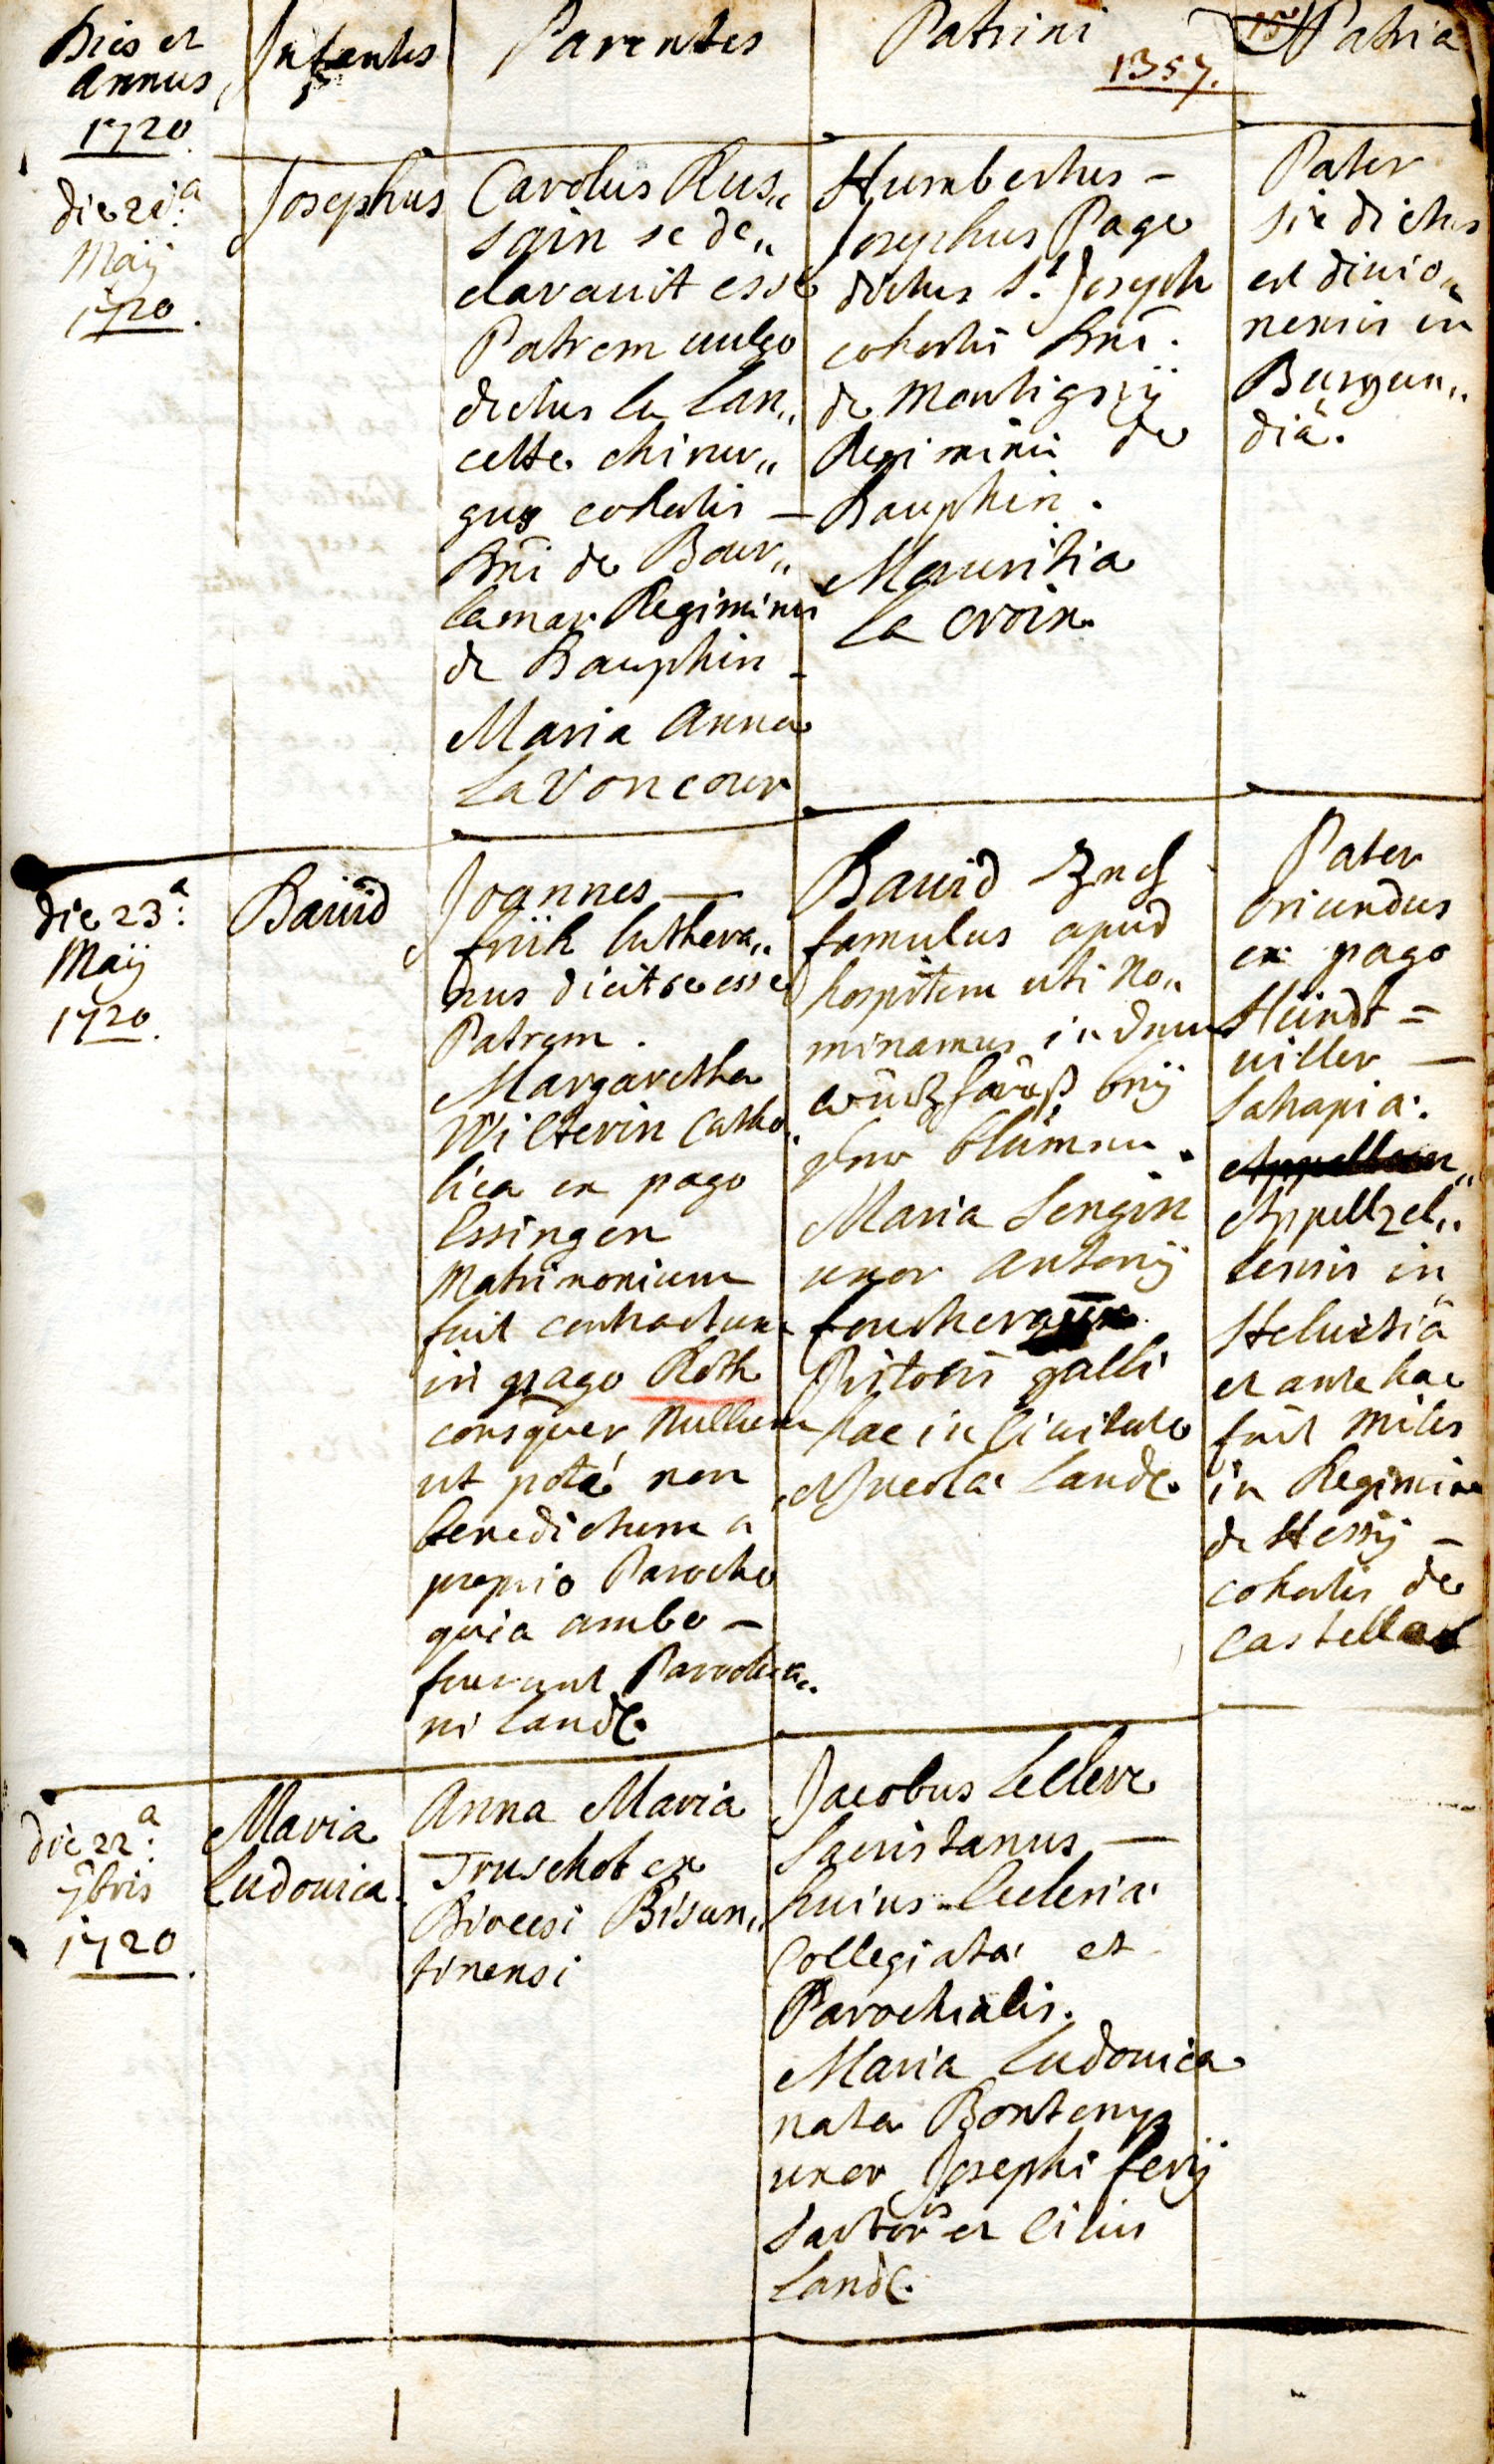 Dies et
Annus
1720.
Infantes
Parentes
Patrini
1357.
Patria
die 21.a
Maÿ
1720.
Josephus
Carolus Rus„
sain se de„
claravit esse
Patrem vulgo
dictus la lan„
cette chirur„
gus cohortis —
Dni de Bour„
lamar Regiminis
de Dauphin —
Maria Anna
La Voncour
Humbertus —
Josephus Page
dictus St. Joseph
cohortis Dni.
de Montignÿ
Regiminis de
Dauphin.
Mauritia
la croix.
Pater
sic dictus
est divio„
nensis in
Burgun„
diâ.
die 23.a
Maÿ
1720.
David
Joannes —
früh luthera„
nus dicit se esse
Patrem.
Margaretha
Wilterin Catho„
lica ex pago
Essingen
Matrimonium
fuit contractum
in pago Roth
consquer Nullum
ut potè non
benedictum a
proprio Parocho
quia ambo —
fuerunt Parochia„
ni Land.
David
famulus apud
hospitem uti no„
minamus in dem
würtzhauß beÿ
der blumen.
Maria Sengin
uxor Antonÿ
Pistoris galli
hac in Civitate
Incola Land.
Pater
oriundus
ex pago
Hündt=
viller —
Sahapia.
Appellzel„
lensis in
Helvetiâ
et ante hac
fuit miles
in Regimine
de Hessÿ —
cohortis de
Castella
die 22.a
7bris
1720.
Maria
Ludovica.
Anna Maria
Truschot ex
Diocesi Bisun„
tinensi
Jacobus Leclerc
Sacristanus —
huius Ecclesia
Collegiata et
Parochialis.
Maria Ludovica
nata Bontemps
uxor Josephi ferÿ
Sartoris et Civis
Land.